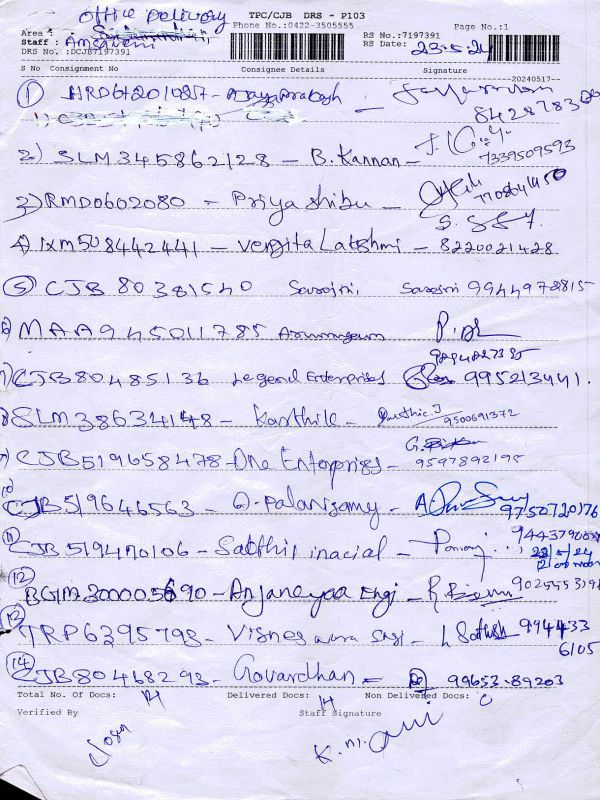 office Delivery
TPC/CJB DRS - P103
Phone No.:0422-3505555
Page No.:1
Area :
Staff :
DRS No. :DCJB7197391
RS No.:7197391
RS Date: 23-5-24
S No Consignment No Consignee Details Signature
--20240517--
1 HRD642010217 - Ajayaprakash
2) SLM345862128 - B. Kannan - 7339509593
3) RMD0602080 - Priya shibu
4) IXM508442441 - Vengita Lakshmi - 8220021428
5 CJB 80381540 Sarojni, Sarojni 9944978815
6) MAA945011785 Arumugam
7) CJB80485136 Legend Enterprises 995213441.
8) SLM38634148 - Karthik - Karthic.J 9500691372
CJB519658478 - One Enterprises - 9597892195
10 CJB519646563 - A. Palanisamy - 9750720176
11 CJB519470106 - Sakthi 23/5/24
12 BGM300005690 - Anjaneyaa Engi -
13 TRP6395793 - Visneswara - 994433 6105
14 CJB80468293 - Govardhan - 99653-89203
Total No. Of Docs: 14 Delivered Docs: 14 Non Delivered Docs: 0
Verified By Staff Signature